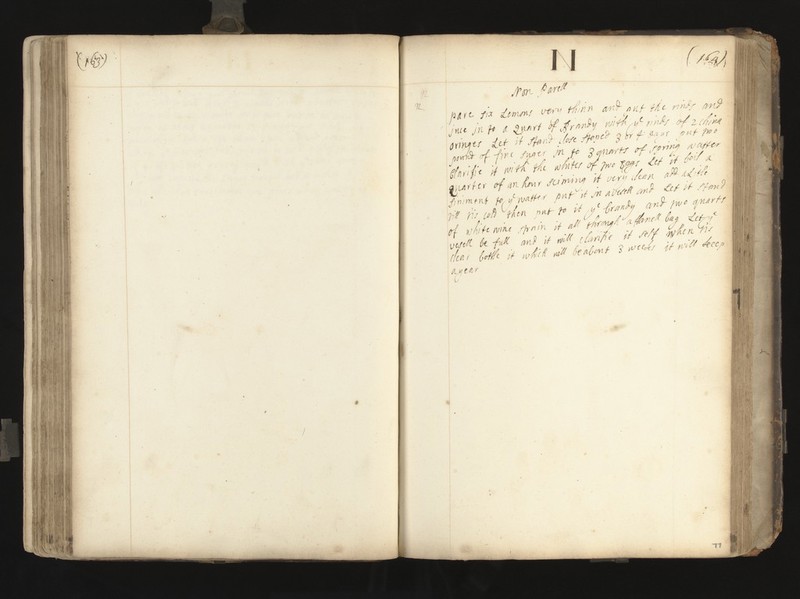 N
Non Parell
pare six Lemons very thinn and put the rinds and
juce in to a Quart of Brandy with ye rinds of 2 china
oringes Let it stand close stoped 3 or 4 days put two
pound of fine suger in to 3 quarts of spring watter
Clarifie it with the whites of two Eggs Let it boil a
quarter of an hour skiming it very clean add a Litle
to ye watter put it in a vesell and Let it stand
till tis cold then put to it ye brandy and two quarts
of white wine strain it all through a flanell bag Let ye
vesell be full and it will clarifie it self when tis
clear bottle it which will be about 3 weeks it will keep
a year